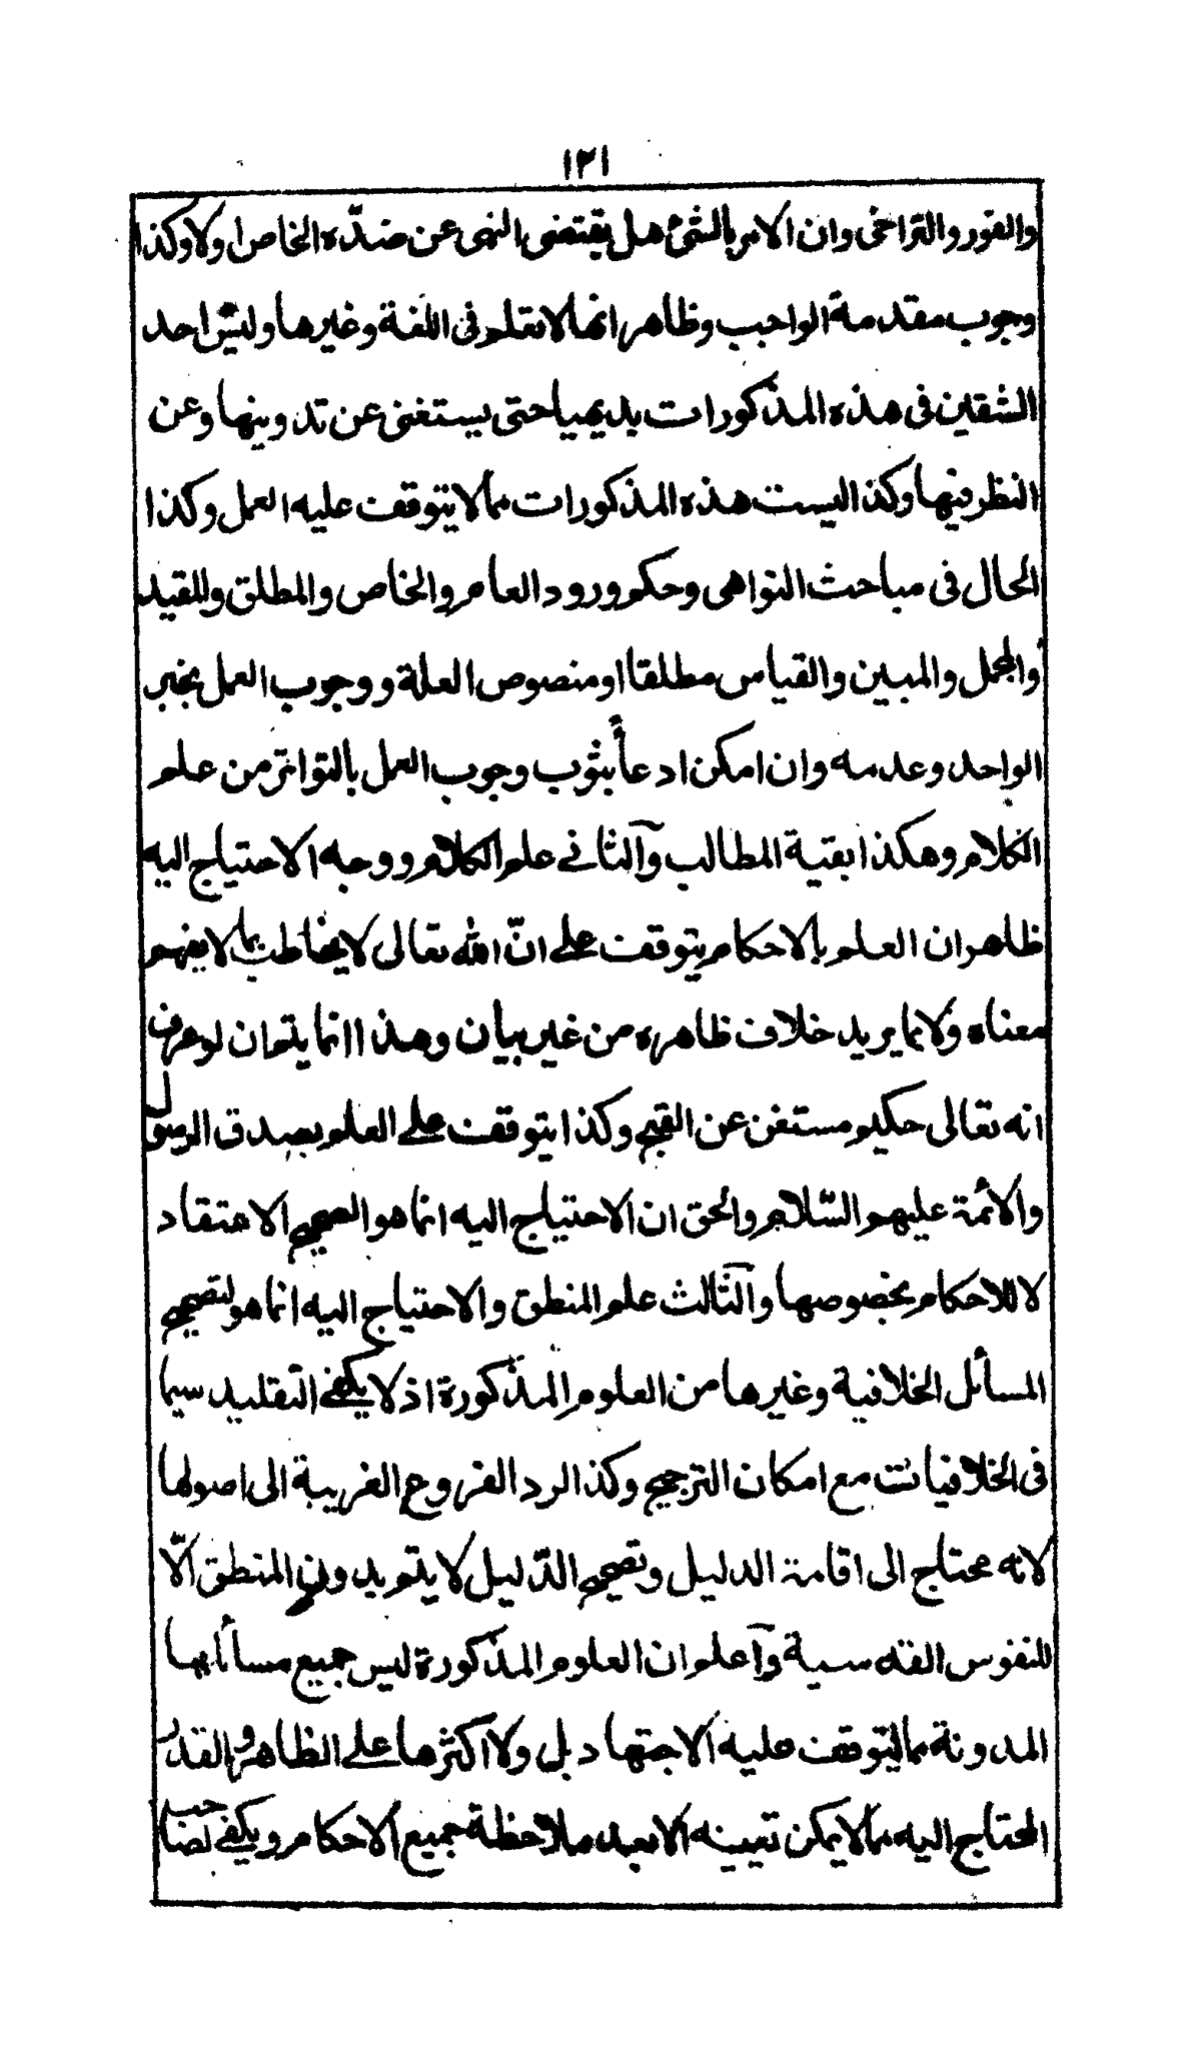 ١٢١
والفور والتراخى وان الامر بالشئ هل يقتضى النهى عن ضدّه الخاص اولا وكذا
وجوب مقدمة الواجب وظاهر انها لا تعلم فى اللغة وغيرها وليس احد
الشقين فى هذه المذكورات بديهيا حتى يستغنى عن تدوينها وعن
النظر فيها وكذا ليست هذه المذكورات مما لا يتوقف عليه العمل وكذا
الحال فى مباحث النواهى وحكم ورود العام والخاص والمطلق والمقيد
والمجمل والمبين والقياس مطلقا او منصوص العلة ووجوب العمل بخبر
الواحد وعدمه وان امكن ادعاً بثوب وجوب العمل بالتواتر من علم
الكلام وهكذا بقية المطالب وآلثانے علم الكلام ووجه الاحتياج اليه
ظاهر ان العلم بالاحكام يتوقف علے انّ الله تعالى لا يخاطب بما لا يفهم
معناه ولا بما يريد خلاف ظاهره من غير بيان وهذا انما يتم ان لو عرف
انه تعالى حكيم مستغن عن القبيح وكذا يتوقف علے العلم بصدق الرسول
والائمة عليهم السّلام والحق ان الاحتياج اليه انما هو لتصحيح الاعتقاد
لا للاحكام بخصوصها وآلثالث علم المنطق والاحتياج اليه انما هو لتصحيح
المسائل الخلافية وغيرها من العلوم المذكورة اذ لا يكفے التقليد سيما
فى الخلافيات مع امكان الترجيح وكذا لرد الفروع الغريبة الى اصولها
لانه محتاج الى اقامة الدليل وتصحيح الدّليل لا يتم بدون المنطق الّا
للنفوس القدسية وآعلم ان العلوم المذكورة ليس جميع مسائلها
المدونة مما يتوقف عليه الاجتهاد بل ولا اكثرها علے الظاهر والقدر
المحتاج اليه مما لا يمكن تعيينه الا بعد ملاحظة جميع الاحكام ويكفے لصاحب